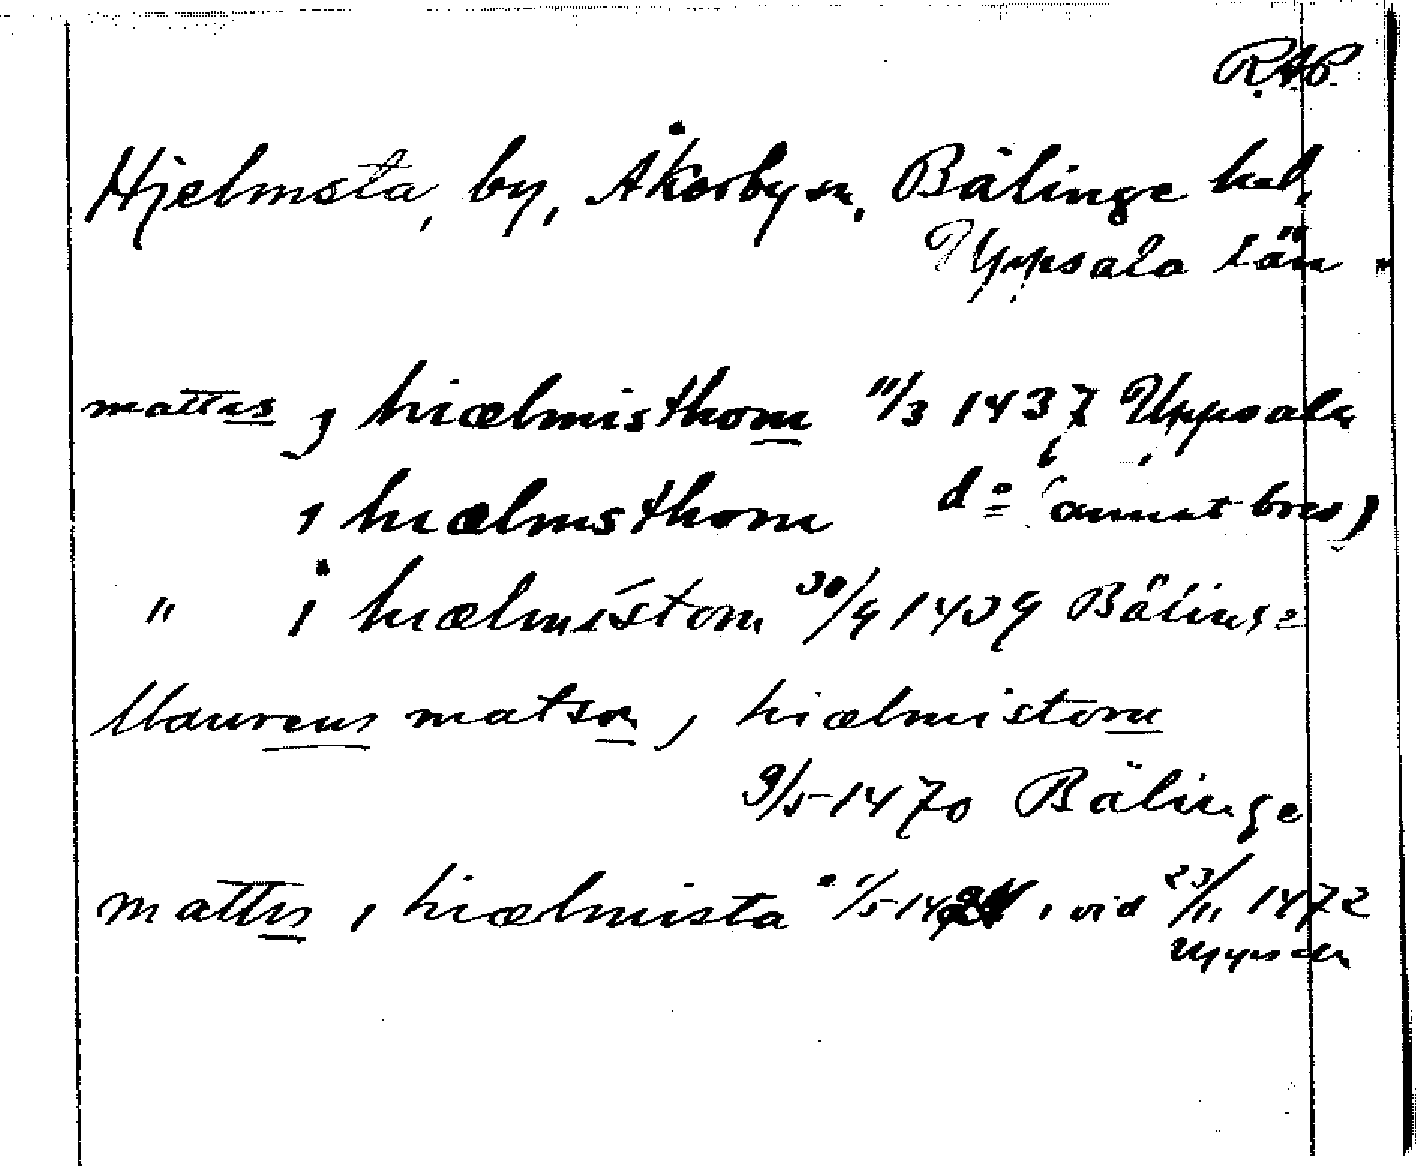 R.A.P.
Hjelmsta, by, Åkerby sn, Bälinge hd,
Uppsala län.
mattes j hiælmisthom 11/3 1437 Uppsala
i hiælmsthom do (annat brev)
" i hiælmistom 30/9 1439 Bälinge
laurens matson, hiælmistom
9/5 1470 Bälinge
mattes, hiælmista 1/5 14, vid 23/11 1472
Uppsala